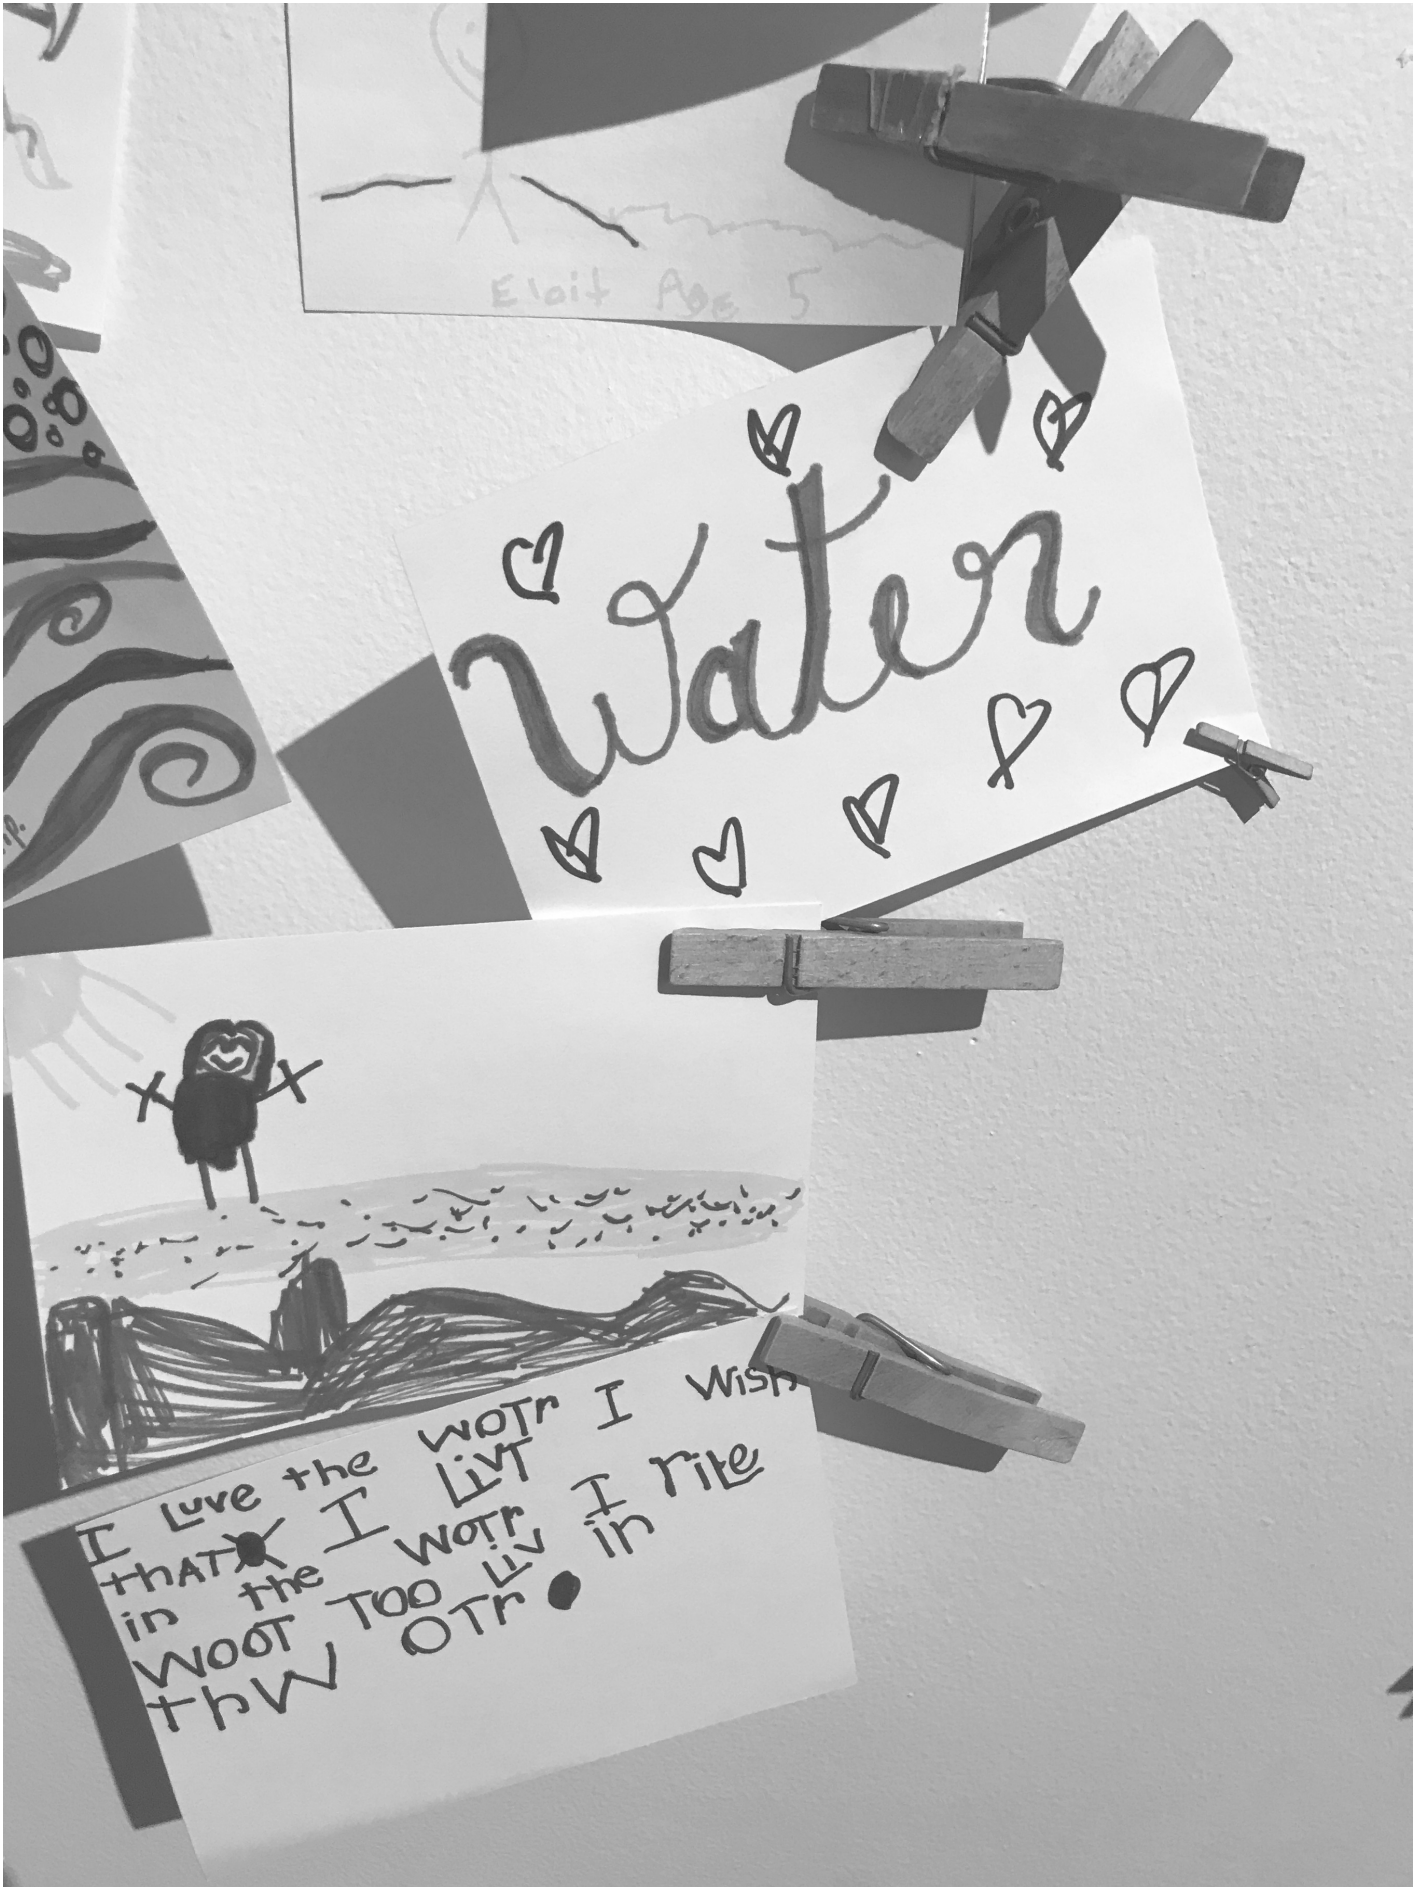 Eloit Age 5
Water
I Luve the WOTr I Wish
thAT I LivT
in the WOTr I rite
WOOT TOO Liv in
thW OTr.